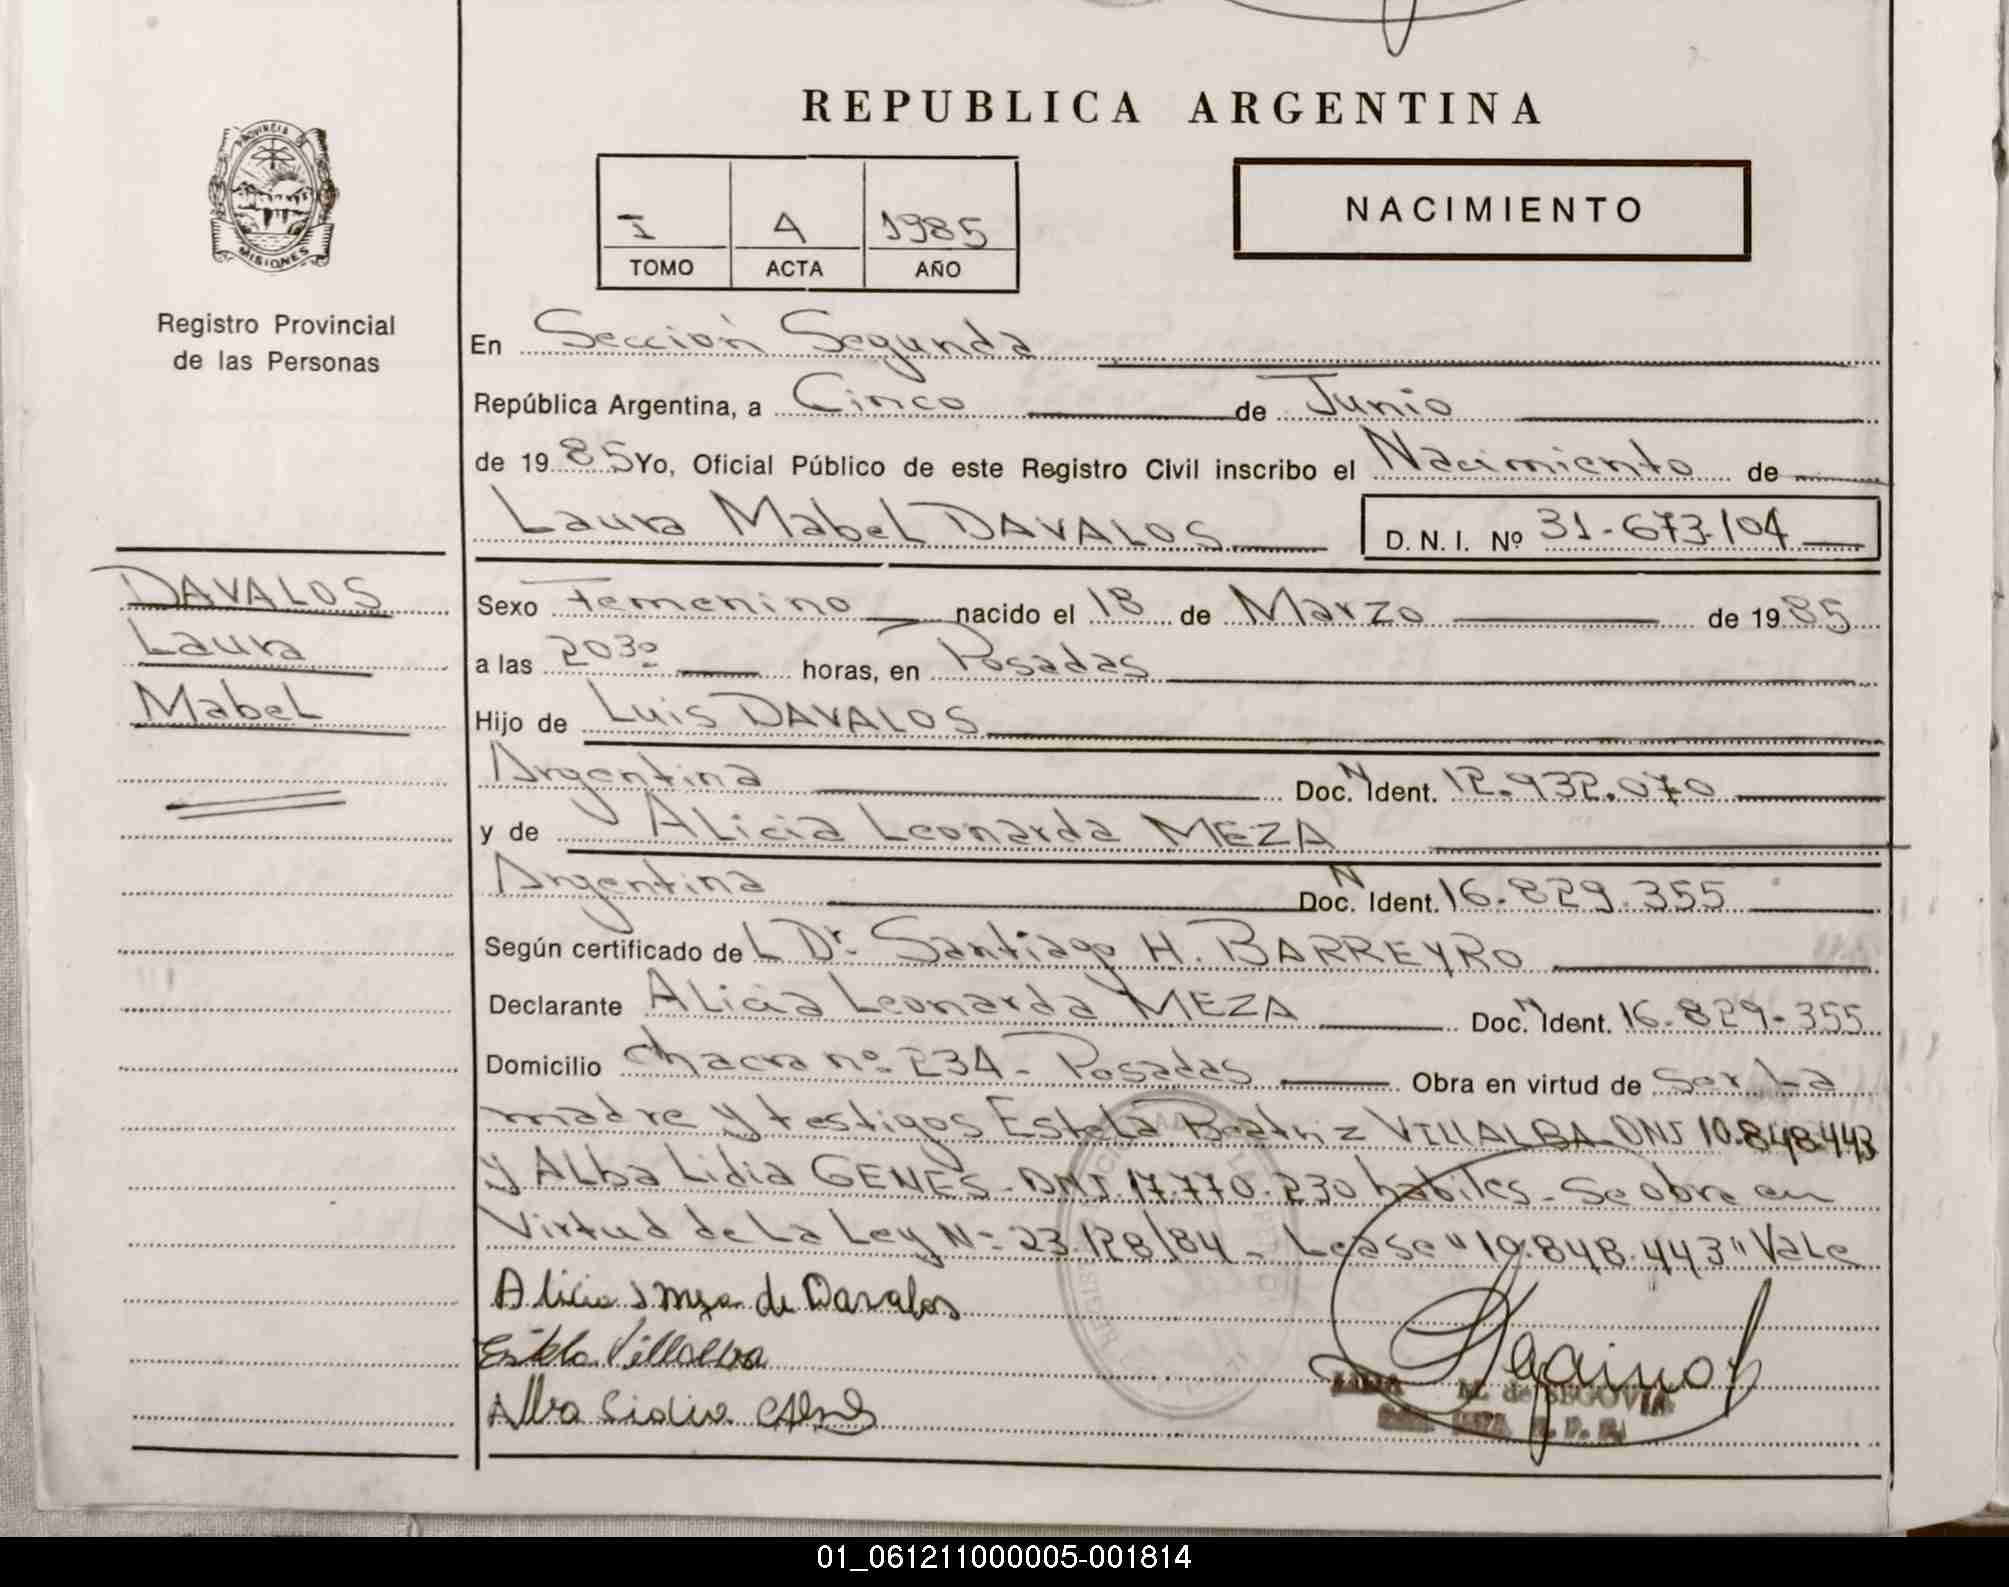 REPUBLICA ARGENTINA
PROVINCIA DE MISIONES
I 4 1985
TOMO ACTA AÑO
NACIMIENTO
Registro Provincial
de las Personas
En Sección Segunda
República Argentina, a Cinco de Junio
de 1985 Yo, Oficial Público de este Registro Civil inscribo el Nacimiento de
Laura Mabel DAVALOS D.N.I. Nº 31-673.104
DAVALOS
Laura
Mabel
Sexo Femenino nacido el 18 de Marzo de 1985
a las 2030 horas, en Posadas
Hijo de Luis DAVALOS
Argentina Doc. N Ident. 12.932.070
y de Alicia Leonarda MEZA
Argentina Doc. N Ident. 16.829.355
Según certificado del Dr. Santiago H. BARREYRO
Declarante Alicia Leonarda MEZA Doc. N Ident. 16.829.355
Domicilio chacra nº 234 - Posadas Obra en virtud de ser la
madre y testigos Estela Beatriz VILLALBA DNI 10.848.443
y Alba Lidia GENES - DNI. 17.770.230 habiles - Se obra en
Virtud de La Ley Nº 23.128/84 - Lease "10.848.443" Vale
Alicia L meza de Davalos
Estela Villalba
Alba Lidia Genes
M. de SEGOVIA
01_061211000005-001814